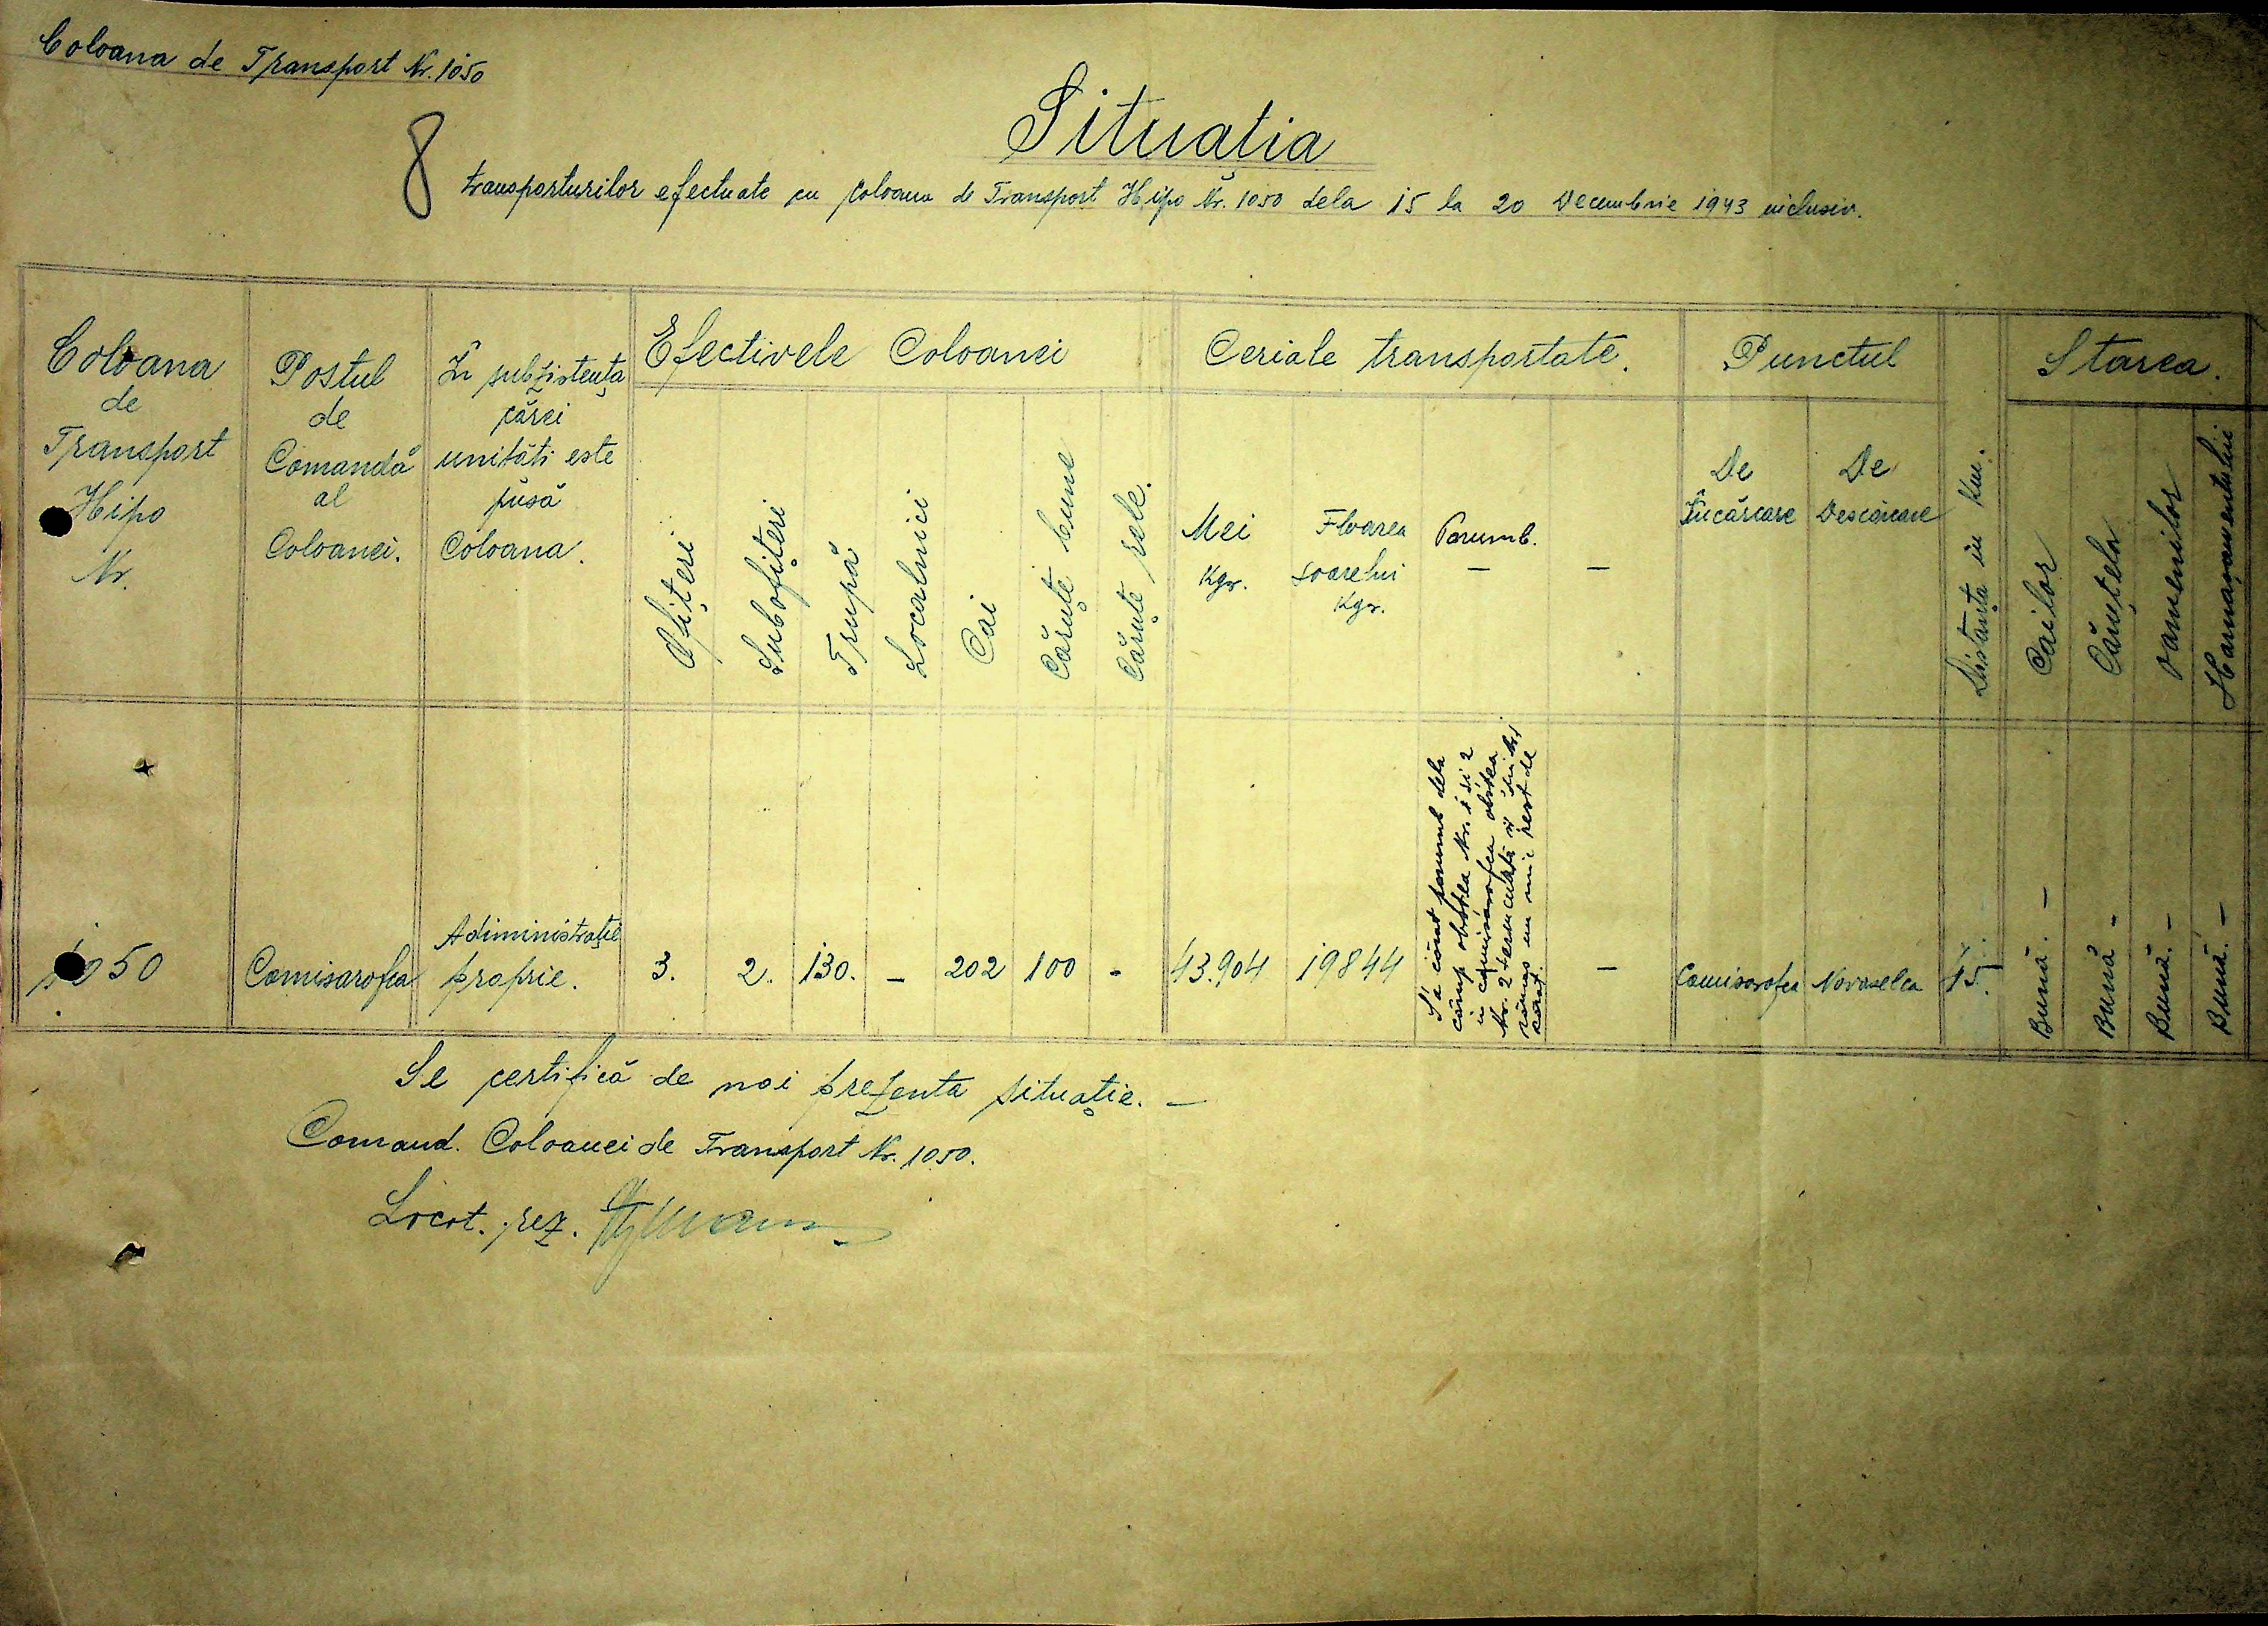 Coloana de Transport Nr. 1050
8
Situația
transporturilor efectuate cu Coloana de Transport Hipo Nr. 1050 dela 15 la 20 Decembrie 1943 inclusiv.
Coloana
de
Transport
Hipo
Nr.
Postul
de
Comandă
al
Coloanei.
În subzistența
cărei
unități este
pusă
Coloana.
Efectivele Coloanei
Ofițeri
Subofițeri
Trupă
Localnici
Cai
Căruțe bune
Căruțe rele.
Ceriale transportate.
Mei
Kgr.
Floarea
soarelui
Kgr.
Porumb.
—
—
Punctul
De
Încărcare
De
Descărcare
Distanța în Km.
Starea.
Cailor
Căruțelor
Oamenilor
Harnașamentului
1050
Comisarofca
Adiministrație
proprie.
3.
2.
130.
-
202
100
-
43.904
19844
S'a cărat porumb dela
câmp obștea Nr. 1 și 2
în comisarofca obștea
Nr. 2 terminată
rămas un mic rest de
cărat.
—
Comisarofca
Novoselca
45.
Bună. —
Bună -
Bună. -
Bună. —
Se certifică de noi prezenta situație. —
Comand. Coloanei de Transport Nr. 1050.
Locot. rez.